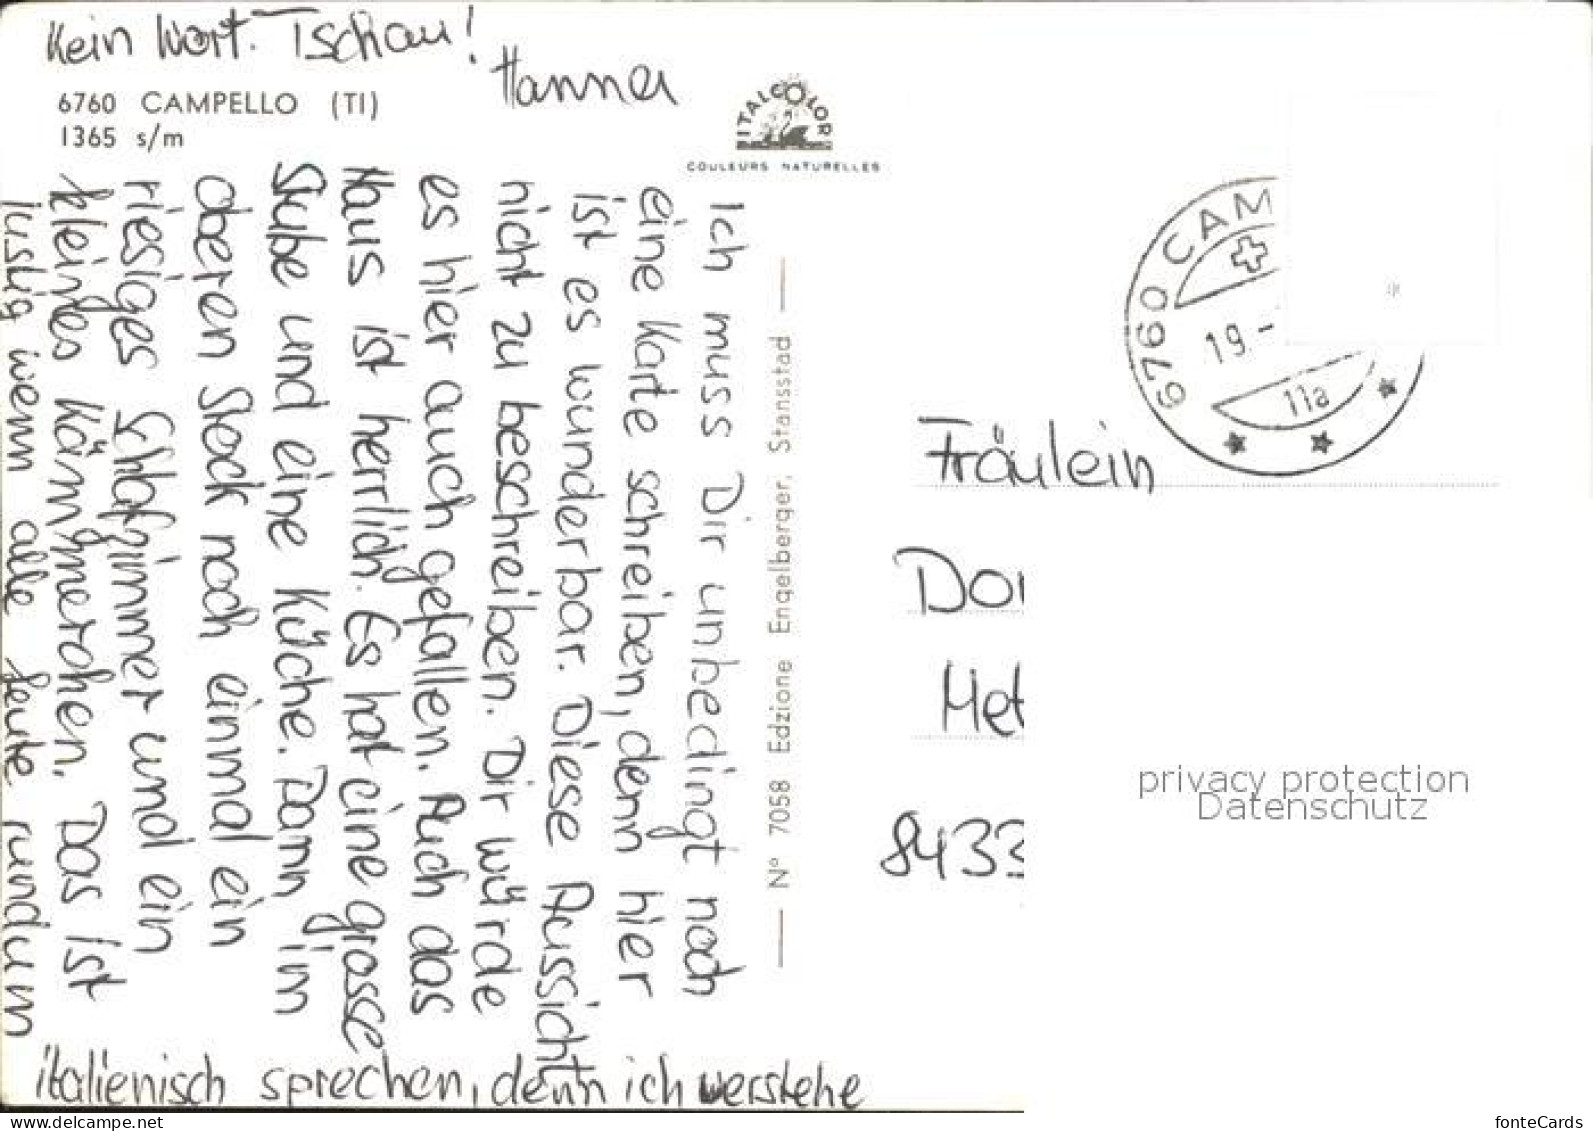 Kein Wort. Tschau!
Hanna
6760 CAMPELLO (TI)
1365 s/m
ITALCOLOR
COULEURS NATURELLES
Ich muss Dir unbedingt noch
eine Karte schreiben, denn hier
ist es wunderbar. Diese Aussicht
nicht zu beschreiben. Dir würde
es hier auch gefallen. Auch das
Haus ist herrlich. Es hat eine grosse
Stube und eine Küche. Dann im
oberen Stock noch einmal ein
riesiges Schlafzimmer und ein
kleines Kämmerchen. Das ist
lustig wenn alle Leute rundum
italienisch sprechen, denn ich verstehe
N° 7058 Edzione Engelberger, Stansstad
6760 CAM
19.-
11a
Fräulein
Dor
Met
8433
privacy protection
Datenschutz
www.delcampe.net
fonteCards